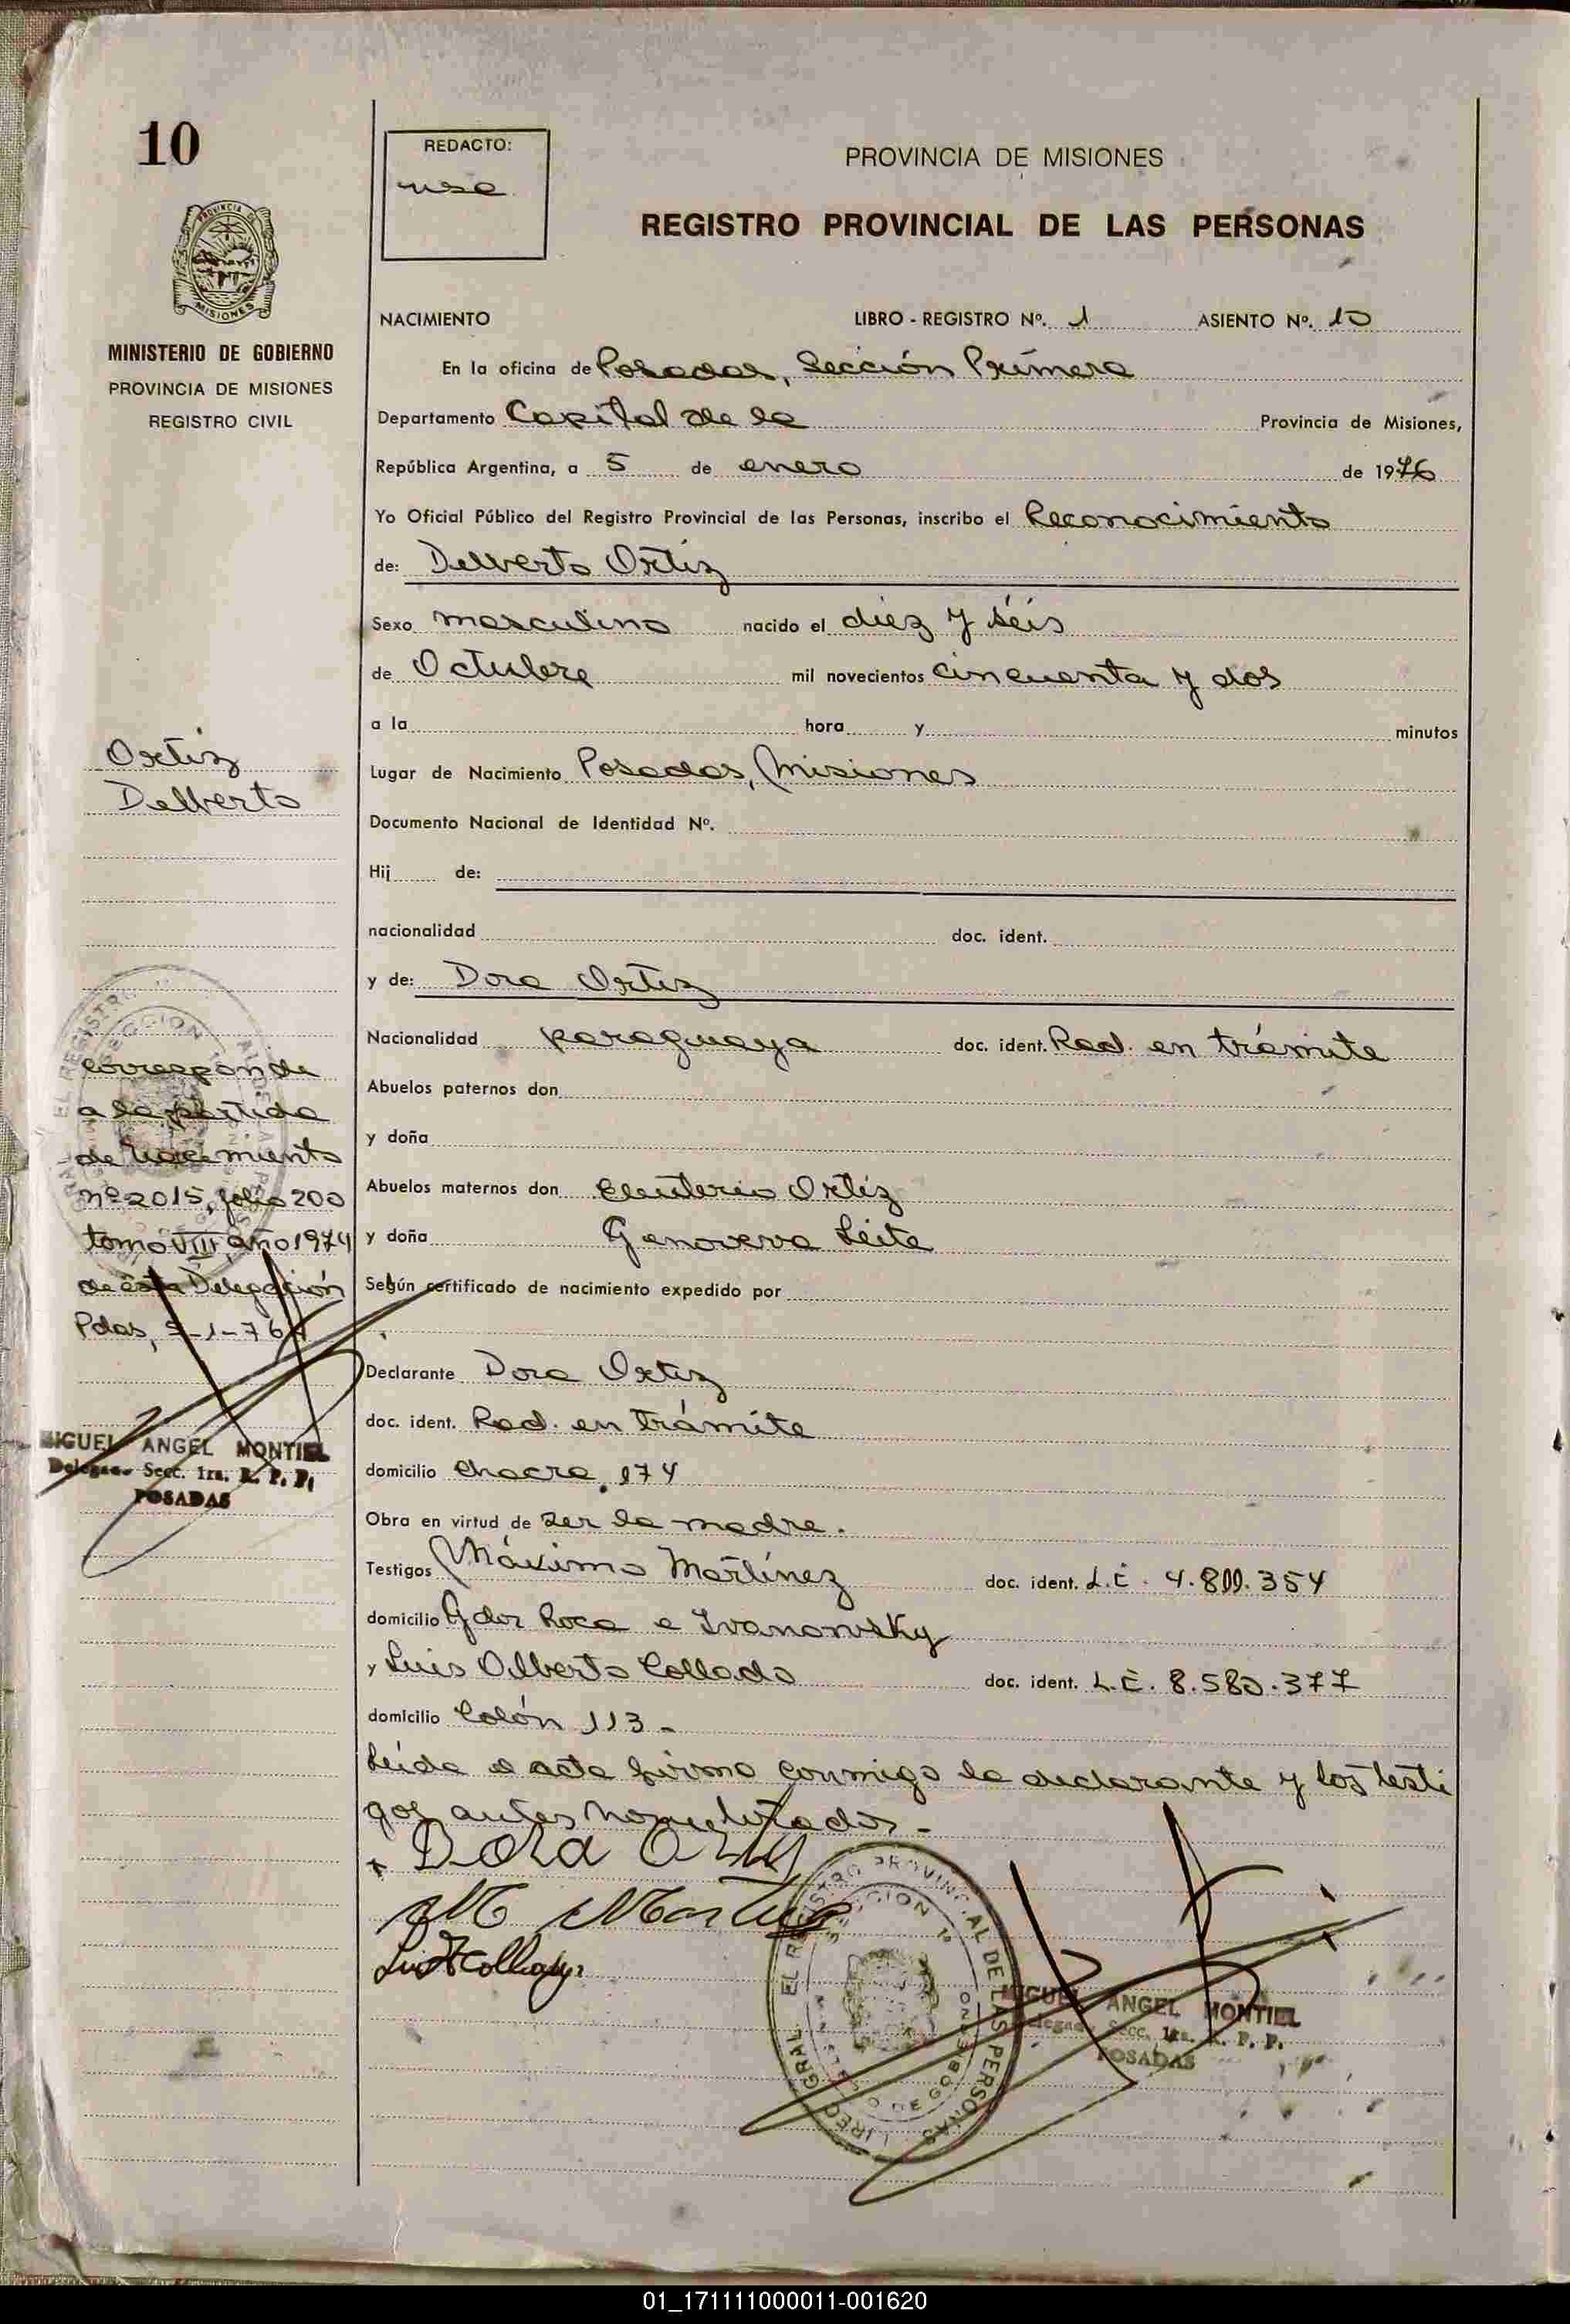 10
REDACTO:
PROVINCIA DE MISIONES
REGISTRO PROVINCIAL DE LAS PERSONAS
PROVINCIA DE
MISIONES
MINISTERIO DE GOBIERNO
PROVINCIA DE MISIONES
REGISTRO CIVIL
NACIMIENTO LIBRO - REGISTRO Nº. 1 ASIENTO Nº. 10
En la oficina de Posadas, Sección Primera
Departamento Capital de la Provincia de Misiones,
República Argentina, a 5 de enero de 1976
Yo Oficial Público del Registro Provincial de las Personas, inscribo el Reconocimiento
de: Delberto Ortiz
Sexo masculino nacido el diez y séis
de Octubre mil novecientos cincuenta y dos
a la hora y minutos
Lugar de Nacimiento Posadas, Misiones
Documento Nacional de Identidad Nº.
Hij de:
nacionalidad doc. ident.
y de: Dora Ortiz
Nacionalidad paraguaya doc. ident. Rad. en trámite
Abuelos paternos don
y doña
Abuelos maternos don Eleuterio Ortiz
y doña Genoveva Leite
Según certificado de nacimiento expedido por
Declarante Dora Ortiz
doc. ident. Rad. en trámite
domicilio Chacra 174
Obra en virtud de ser la madre.
Testigos Máximo Martínez doc. ident. L.E. 4.800.354
domicilio Gdor Roca e Ivanowsky
y Luis Alberto Collado doc. ident. L.E. 8.580.377
domicilio Colón 113 -
Leída el acta firma conmigo la declarante y los testi
gos antes
Dora Ortiz
Ortiz
Delberto
corresponde
a la partida
de nacimiento
nº 2015, folio 200
tomo VIII, año 1974
de esta Delegación
Pdas, 5-1-76
MIGUEL ANGEL MONTIEL
Delegado Secc. 1ra. R. P. P.
POSADAS
MIGUEL ANGEL MONTIEL
Delegado Secc. 1ra. R. P. P.
POSADAS
01_171111000011-001620